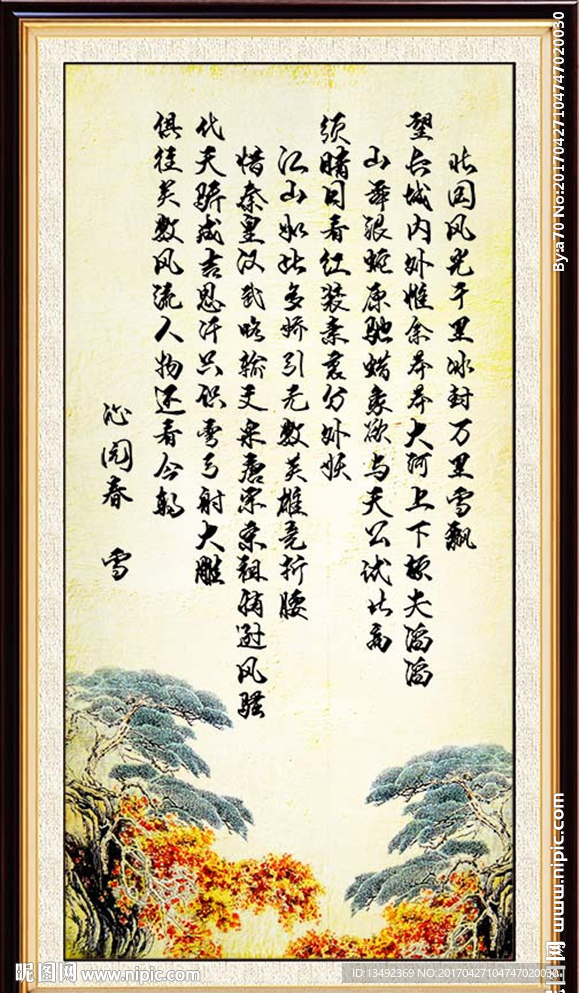 北国风光千里冰封万里雪飘
望长城内外惟余莽莽大河上下顿失滔滔
山舞银蛇原驰蜡象欲与天公试比高
须晴日看红装素裹分外妖
江山如此多娇引无数英雄竞折腰
惜秦皇汉武略输文采唐宗宋祖稍逊风骚
代天骄成吉思汗只识弯弓射大雕
俱往矣数风流人物还看今朝
沁园春 雪
By:a70 No:20170427104747020030
昵图网 www.nipic.com
昵图网 www.nipic.com
ID:13492369 NO:20170427104747020030